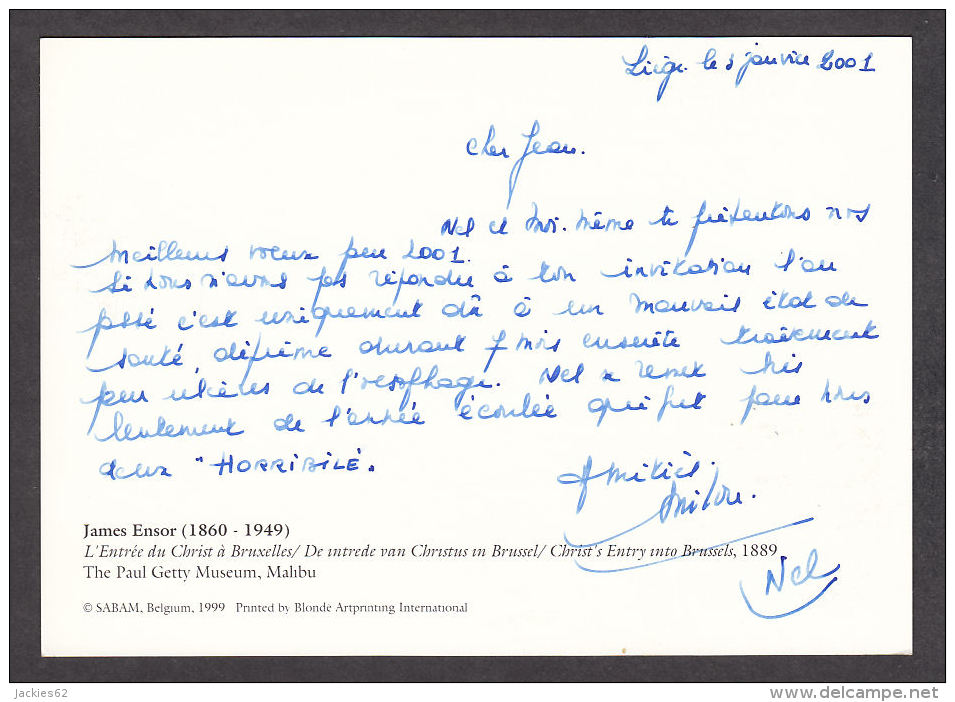 Liège le 3 janvier 2001
Cher Jean.
Nel et moi-même te présentons nos
meilleurs voeux pour 2001.
Si nous n'avons pas répondu à ton invitation l'an
passé c'est uniquement dû à un mauvais état de
santé, déprime durant 7 mois ensuite traitement
pour ulcères de l'oesophage. Nel se remet très
lentement de l'année écoulée qui fut pour nous
deux "HORRIBILE".
Amitiés.
Nel
James Ensor (1860 - 1949)
L'Entrée du Christ à Bruxelles/ De intrede van Christus in Brussel/ Christ's Entry into Brussels, 1889
The Paul Getty Museum, Malibu
© SABAM, Belgium, 1999 Printed by Blondé Artprinting International
Jackies62
www.delcampe.net